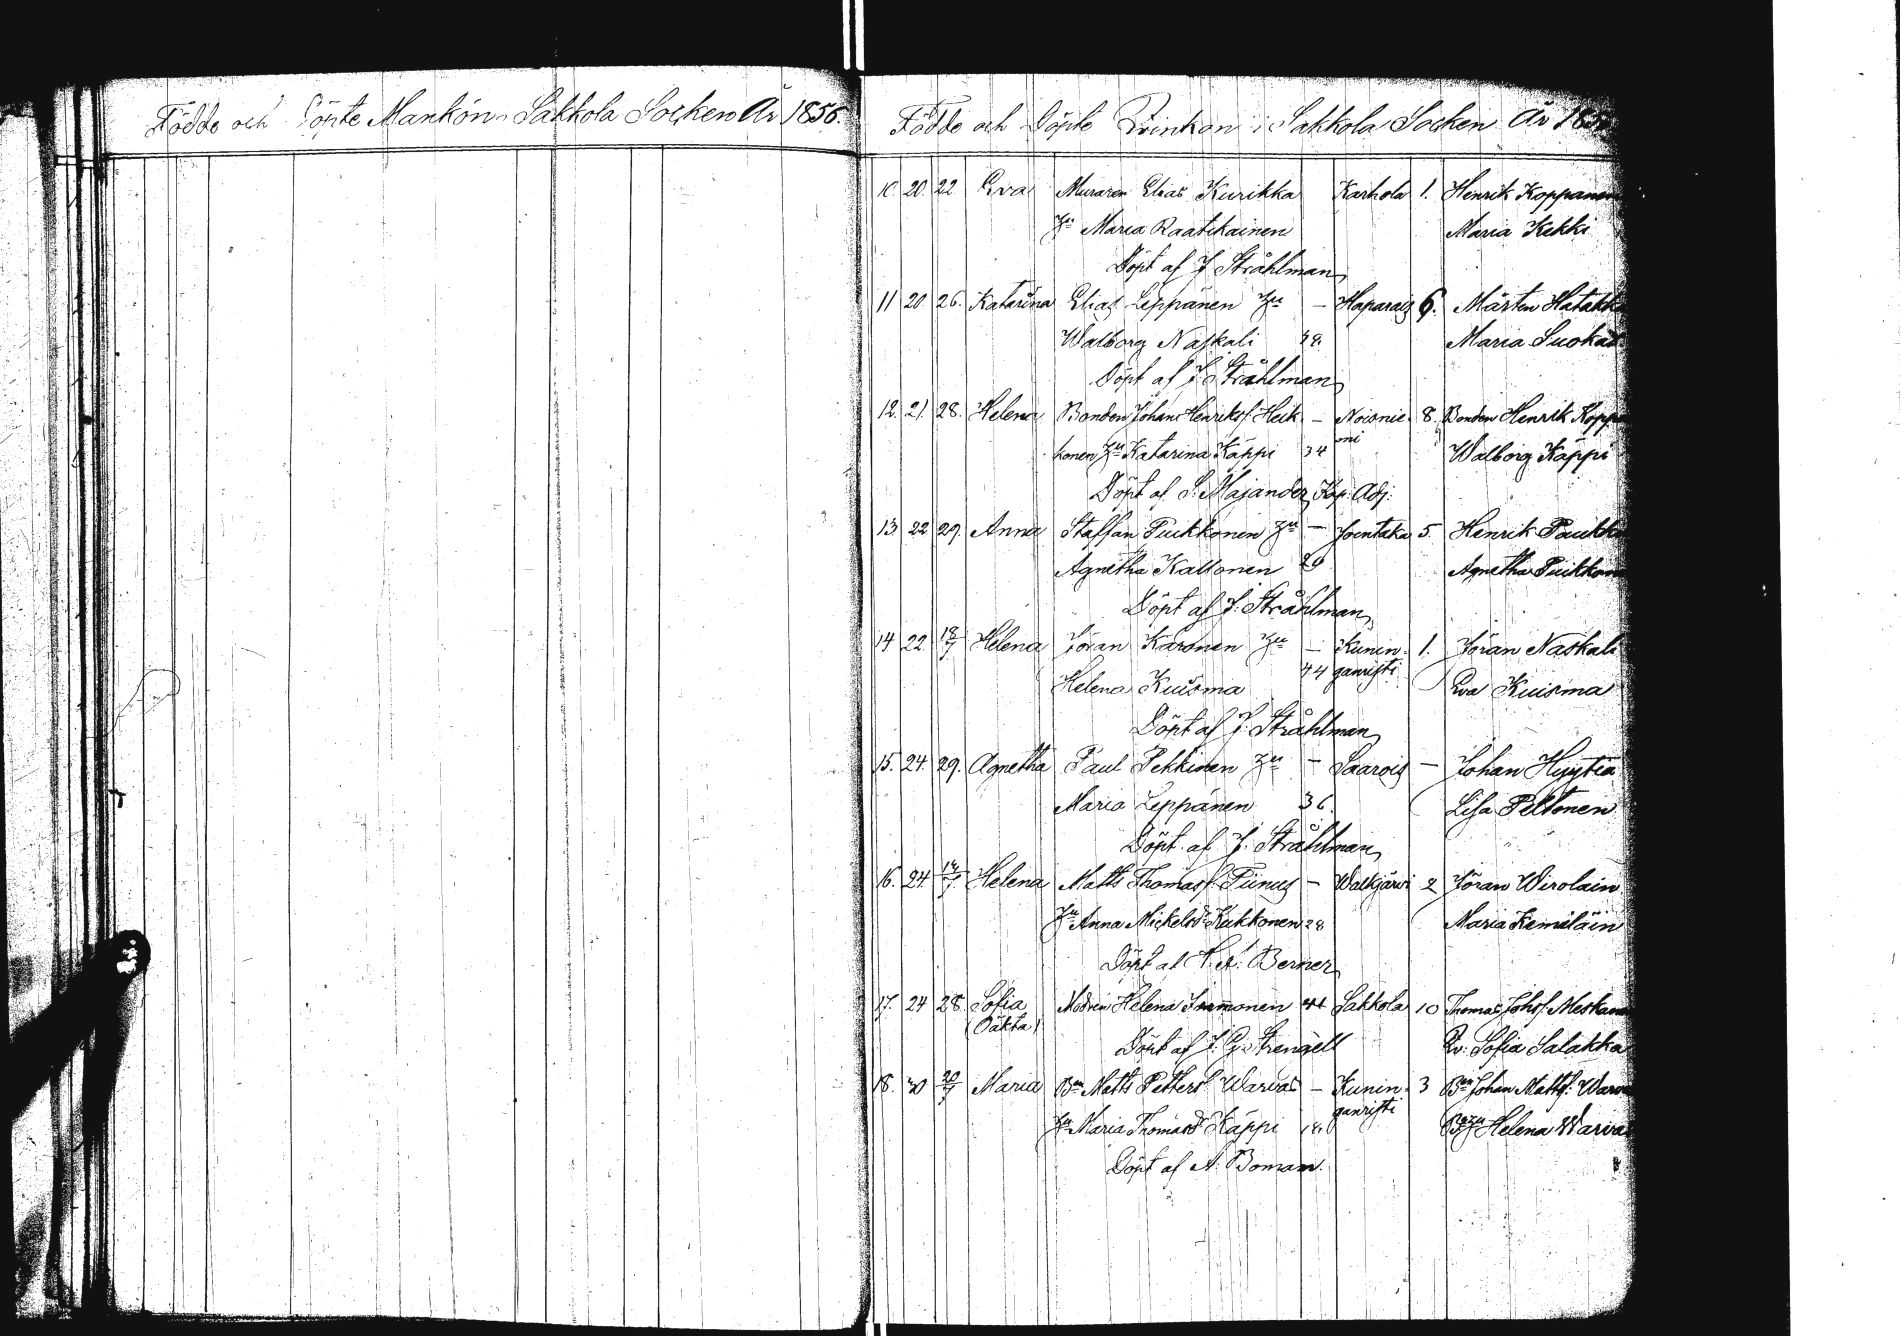 Födde och Döpte Mankön Sakkola Socken År 1856.
Födde och Döpte Qvinkön i Sakkola Socken År 185
10. 20. 22 Eva Muraren Elias Kurikka Karhola 1. Henrik Koppanen
Hu Maria Raatikainen Maria Kekki
Döpt af J Stråhlman
11 20 26. Katarina Elias Leppänen Hu — Haparais 6. Mårten Hatakka
Walborg Naskali Maria Suoka
Döpt af J. Stråhlman
12. 21. 28. Helena Bonden Johan Henriks. Heik — Noisnie 8. Bonden Henrik Koppa
konen Hu Katarina Käppi 34 mi Walborg Käppi
Döpt af S. Majander Kap. Adj.
13. 22 29. Anna Staffan Puikkonen Hu — Jountaka 5. Henrik Paukku
Agnetha Kallonen 20 Agnetha Puikkon
Döpt af J. Stråhlman
14 22. 18/7 Helena Jöran Karonen Hu — Kunin 1. Jöran Naskali
Helena Kuisma 44 ganristi Eva Kuisma
Döpt af J. Stråhlman
15. 24. 29. Agnetha Paul Pekkinen Hu — Saarois — Johan Hyytiä
Maria Leppänen 36. Lisa Peltonen
Döpt af J. Stråhlman
16. 24. Helena Matts Thomas. Piinus — Walkjärvi 2 Jöran Wirolain
Hu Anna Mickelsd. Kukkonen 28 Maria Kemiläin
Döpt af Berner
17. 24 28. Sofia Modren Helena Immonen 44 Sakkola 10 Thomas Johs. Meskan
(Oäkta) Döpt af J. G. Strengell Qv: Sofia Salakka
18. 30 20/7 Maria Bn Matts Petters. Warvas — Kunin 3 Bn Johan Matts. Warva
Hu Maria Thomasd. Käppi 18. ganristi Helena Warva
Döpt af A. Boman.